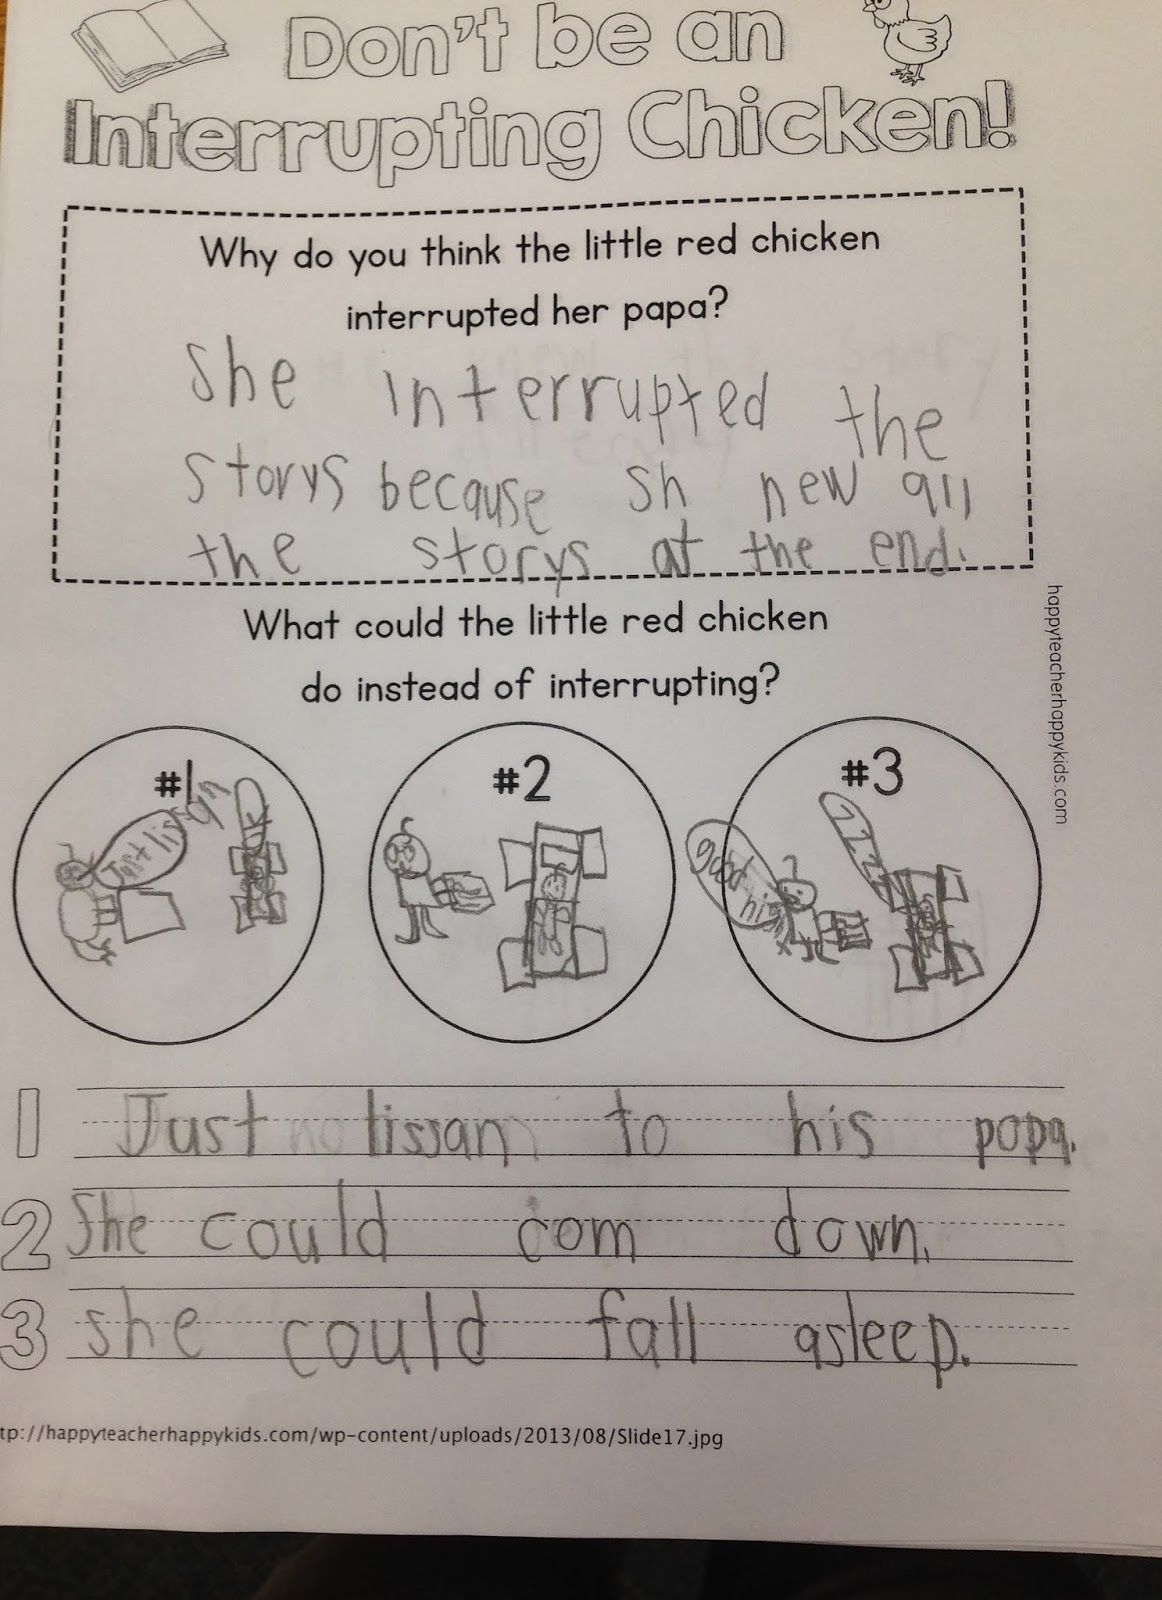 Don't be an
Interrupting Chicken!
Why do you think the little red chicken
interrupted her papa?
She interrupted the
storys because sh new all
the storys at the end.
happyteacherhappykids.com
What could the little red chicken
do instead of interrupting?
#1
#2
#3
Just lissan
ok
good
zzzz
1 Just lissan to his popa.
2 She could com down.
3 she could fall asleep.
tp://happyteacherhappykids.com/wp-content/uploads/2013/08/Slide17.jpg